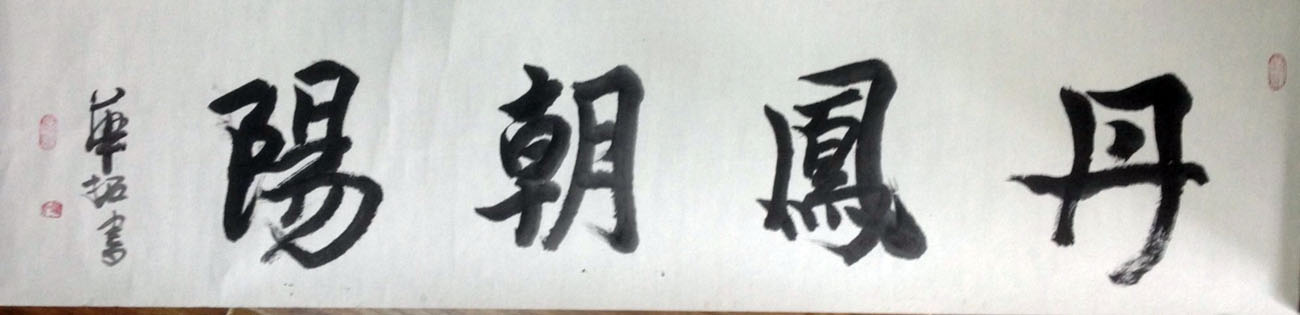 丹鳳朝陽
華拓書